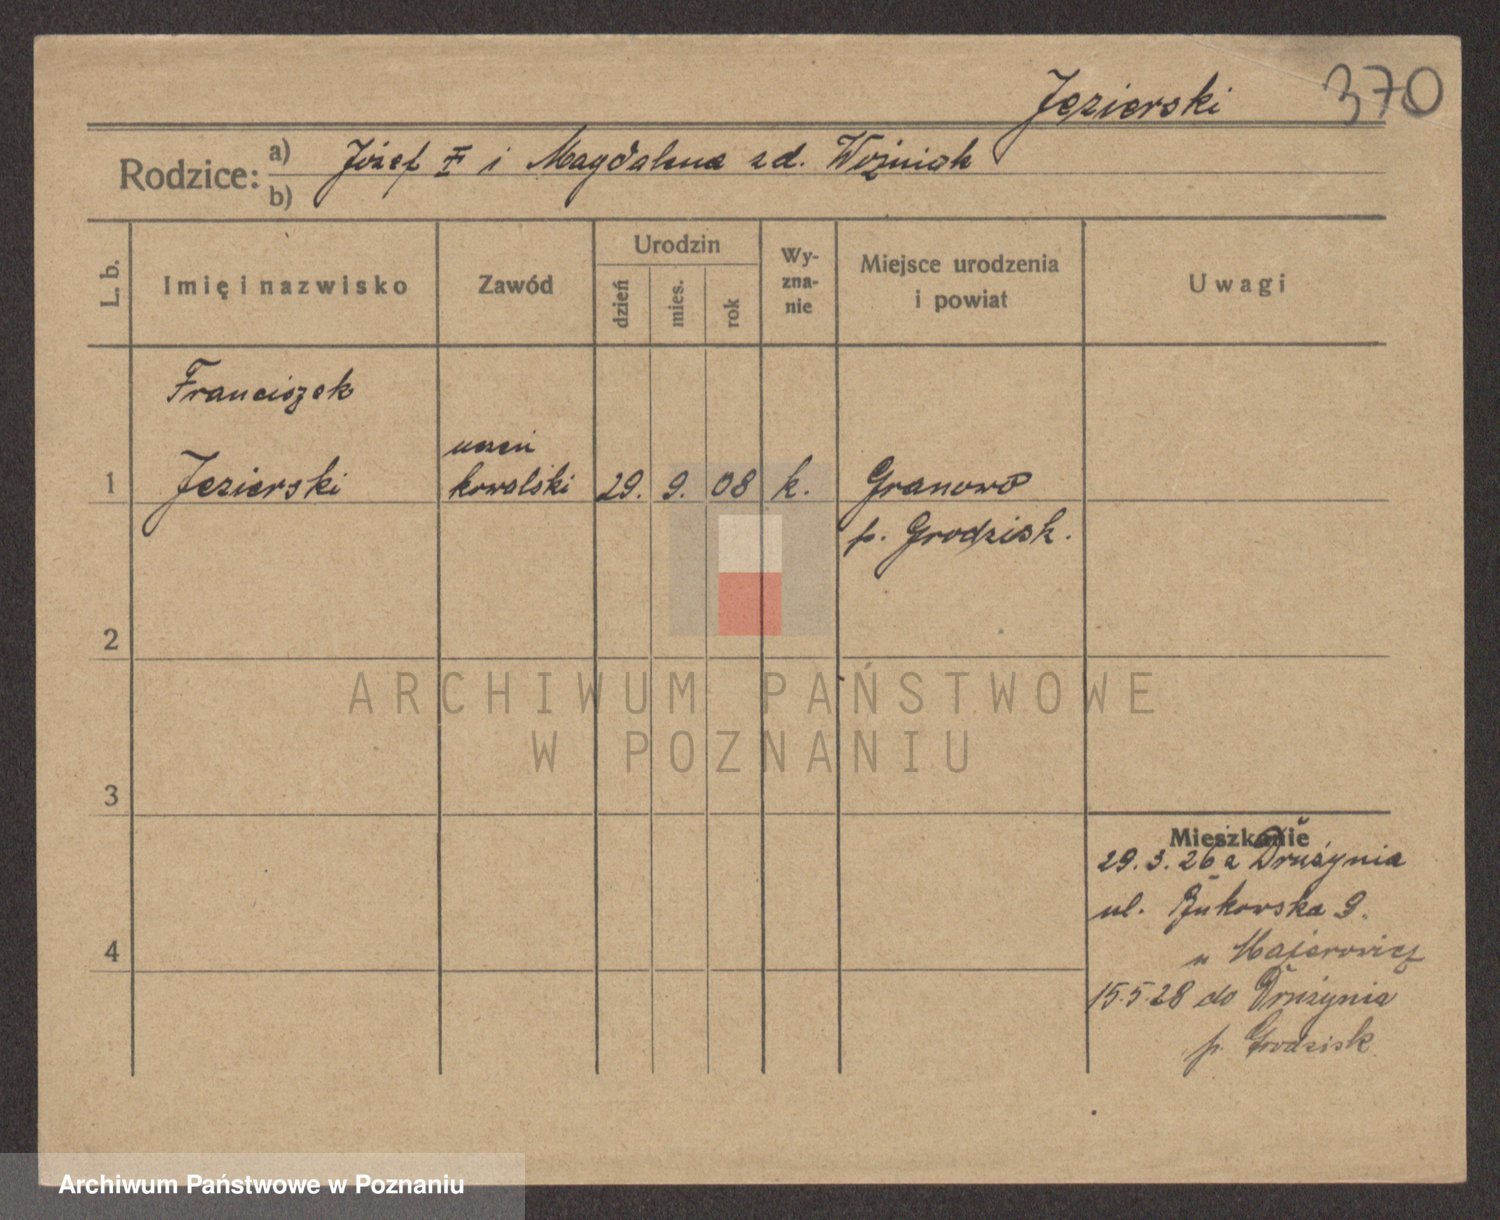 370
Jezierski
Rodzice: a) Józef i Magdalena zd. Woźniak
b)
L. b.
Imię i nazwisko
Zawód
Urodzin
dzień
mies.
rok
Wy-
zna-
nie
Miejsce urodzenia
i powiat
Uwagi
Franciszek
1 Jezierski
uczeń
kowalski
29. 9. 08 k.
Granowo
p. Grodzisk.
2
3
4
Mieszkanie
29. 3. 26 z Drużynia
ul. Bukowska 9.
u Majerowicz
15.5.28 do Drużynia
p. Grodzisk
ARCHIWUM PAŃSTWOWE
W POZNANIU
Archiwum Państwowe w Poznaniu